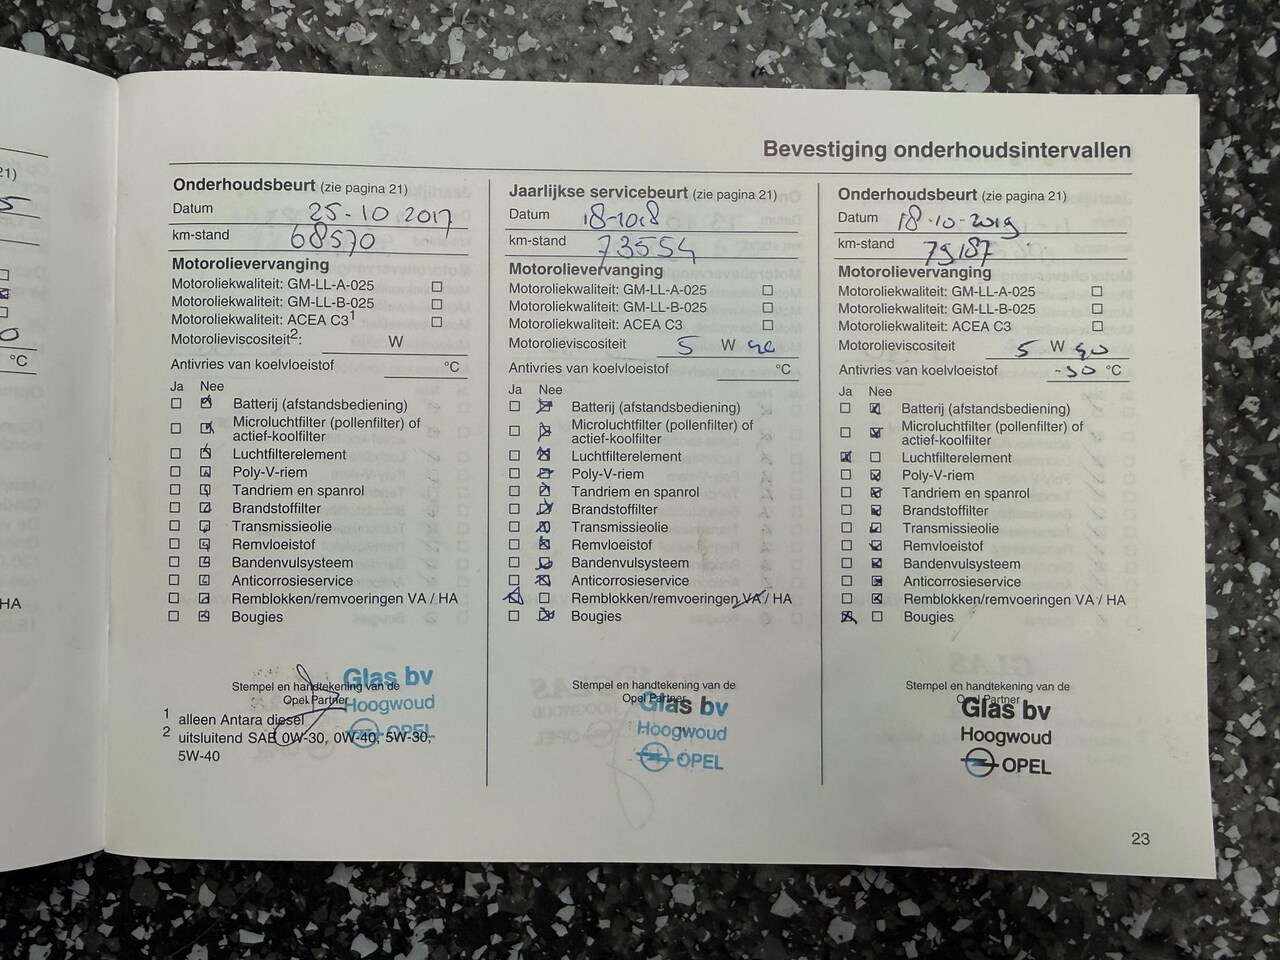 21)
5
0
°C
HA
Bevestiging onderhoudsintervallen
Onderhoudsbeurt (zie pagina 21)
Datum 25-10 2017
km-stand 68570
Motorolievervanging
Motoroliekwaliteit: GM-LL-A-025
Motoroliekwaliteit: GM-LL-B-025
Motoroliekwaliteit: ACEA C3¹
Motorolieviscositeit²: W
Antivries van koelvloeistof °C
Ja Nee
Batterij (afstandsbediening)
Microluchtfilter (pollenfilter) of
actief-koolfilter
Luchtfilterelement
Poly-V-riem
Tandriem en spanrol
Brandstoffilter
Transmissieolie
Remvloeistof
Bandenvulsysteem
Anticorrosieservice
Remblokken/remvoeringen VA / HA
Bougies
Stempel en handtekening van de
Opel Partner
Glas bv
Hoogwoud
OPEL
1 alleen Antara diesel
2 uitsluitend SAE 0W-30, 0W-40, 5W-30,
5W-40
Jaarlijkse servicebeurt (zie pagina 21)
Datum 18-1018
km-stand 73554
Motorolievervanging
Motoroliekwaliteit: GM-LL-A-025
Motoroliekwaliteit: GM-LL-B-025
Motoroliekwaliteit: ACEA C3
Motorolieviscositeit 5 W
Antivries van koelvloeistof °C
Ja Nee
Batterij (afstandsbediening)
Microluchtfilter (pollenfilter) of
actief-koolfilter
Luchtfilterelement
Poly-V-riem
Tandriem en spanrol
Brandstoffilter
Transmissieolie
Remvloeistof
Bandenvulsysteem
Anticorrosieservice
Remblokken/remvoeringen VA / HA
Bougies
Stempel en handtekening van de
Opel Partner
Glas bv
Hoogwoud
OPEL
Onderhoudsbeurt (zie pagina 21)
Datum 18-10-2019
km-stand 79187
Motorolievervanging
Motoroliekwaliteit: GM-LL-A-025
Motoroliekwaliteit: GM-LL-B-025
Motoroliekwaliteit: ACEA C3
Motorolieviscositeit 5 W
Antivries van koelvloeistof -30 °C
Ja Nee
Batterij (afstandsbediening)
Microluchtfilter (pollenfilter) of
actief-koolfilter
Luchtfilterelement
Poly-V-riem
Tandriem en spanrol
Brandstoffilter
Transmissieolie
Remvloeistof
Bandenvulsysteem
Anticorrosieservice
Remblokken/remvoeringen VA / HA
Bougies
Stempel en handtekening van de
Opel Partner
Glas bv
Hoogwoud
OPEL
23